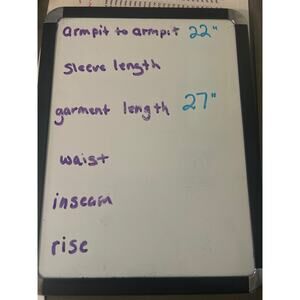 armpit to armpit 22"
sleeve length
garment length 27"
waist
inseam
rise